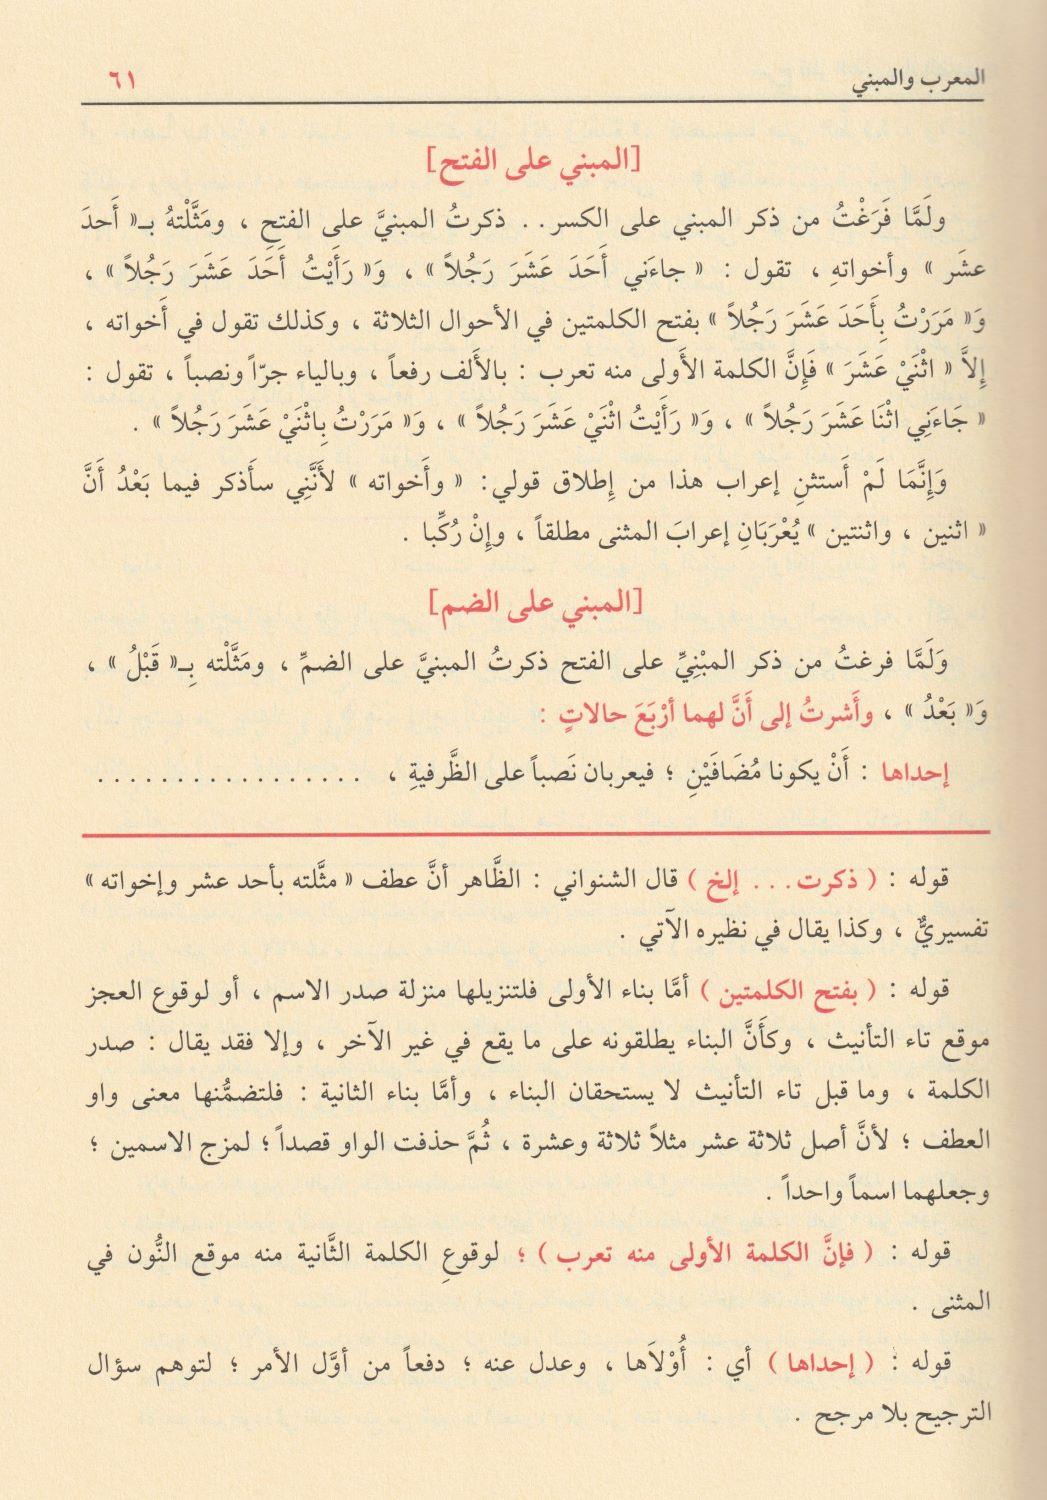 المعرب والمبني
٦١
[المبني على الفتح]
ولَمَّا فَرَغْتُ من ذكر المبني على الكسر.. ذكرتُ المبنيَّ على الفتح ، ومَثَّلْتهُ بـ« أَحدَ
عشَر » وأخواتهِ ، تقول : « جاءَني أَحَدَ عَشَرَ رَجُلاً » ، وَ« رَأَيْتُ أَحَدَ عَشَرَ رَجُلاً » ،
وَ« مَرَرْتُ بِأَحَدَ عَشَرَ رَجُلاً » بفتح الكلمتين في الأحوال الثلاثة ، وكذلك تقول في أَخواته ،
إِلاَّ « اثْنَيْ عَشَرَ » فَإِنَّ الكلمة الأَولى منه تعرب : بالأَلف رفعاً ، وبالياء جرّاً ونصباً ، تقول :
« جَاءَنِي اثْنَا عَشَرَ رَجُلاً » ، وَ« رَأَيْتُ اثْنَيْ عَشَرَ رَجُلاً » ، وَ« مَرَرْتُ بِاثْنَيْ عَشَرَ رَجُلاً » .
وَإِنَّمَا لَمْ أَستثنِ إعراب هذا من إِطلاق قولي: « وأَخواته » لأَنَّنِي سأَذكر فيما بَعْدُ أَنَّ
« اثنين ، واثنتين » يُعْرَبَانِ إعرابَ المثنى مطلقاً ، وإِنْ رُكِّبا .
[المبني على الضم]
وَلَمَّا فرغتُ من ذكر المبْنِيِّ على الفتح ذكرتُ المبنيَّ على الضمِّ ، ومَثَّلْته بِـ« قَبْلُ » ،
وَ« بَعْدُ » ، وأَشرتُ إلى أَنَّ لهما أرْبَعَ حالاتٍ :
إحداها : أَنْ يكونا مُضَافَيْنِ ؛ فيعربان نَصباً على الظَّرفيةِ ، . . . . . . . . . . . . . . . . .
قوله : ( ذكرت... إلخ ) قال الشنواني : الظَّاهر أنَّ عطف « مثَّلته بأحد عشر وإخواته »
تفسيريٌّ ، وكذا يقال في نظيره الآتي .
قوله : ( بفتح الكلمتين ) أمَّا بناء الأولى فلتنزيلها منزلة صدر الاسم ، أو لوقوع العجز
موقع تاء التأنيث ، وكأَنَّ البناء يطلقونه على ما يقع في غير الآخر ، وإلا فقد يقال : صدر
الكلمة ، وما قبل تاء التأنيث لا يستحقان البناء ، وأمَّا بناء الثانية : فلتضمُّنها معنى واو
العطف ؛ لأنَّ أصل ثلاثة عشر مثلاً ثلاثة وعشرة ، ثُمَّ حذفت الواو قصداً ؛ لمزج الاسمين ؛
وجعلهما اسماً واحداً .
قوله : ( فإنَّ الكلمة الأولى منه تعرب ) ؛ لوقوعِ الكلمة الثَّانية منه موقع النُّون في
المثنى .
قوله : ( إحداها ) أي : أُوْلاَها ، وعدل عنه ؛ دفعاً من أوَّل الأمر ؛ لتوهم سؤال
الترجيح بلا مرجح .